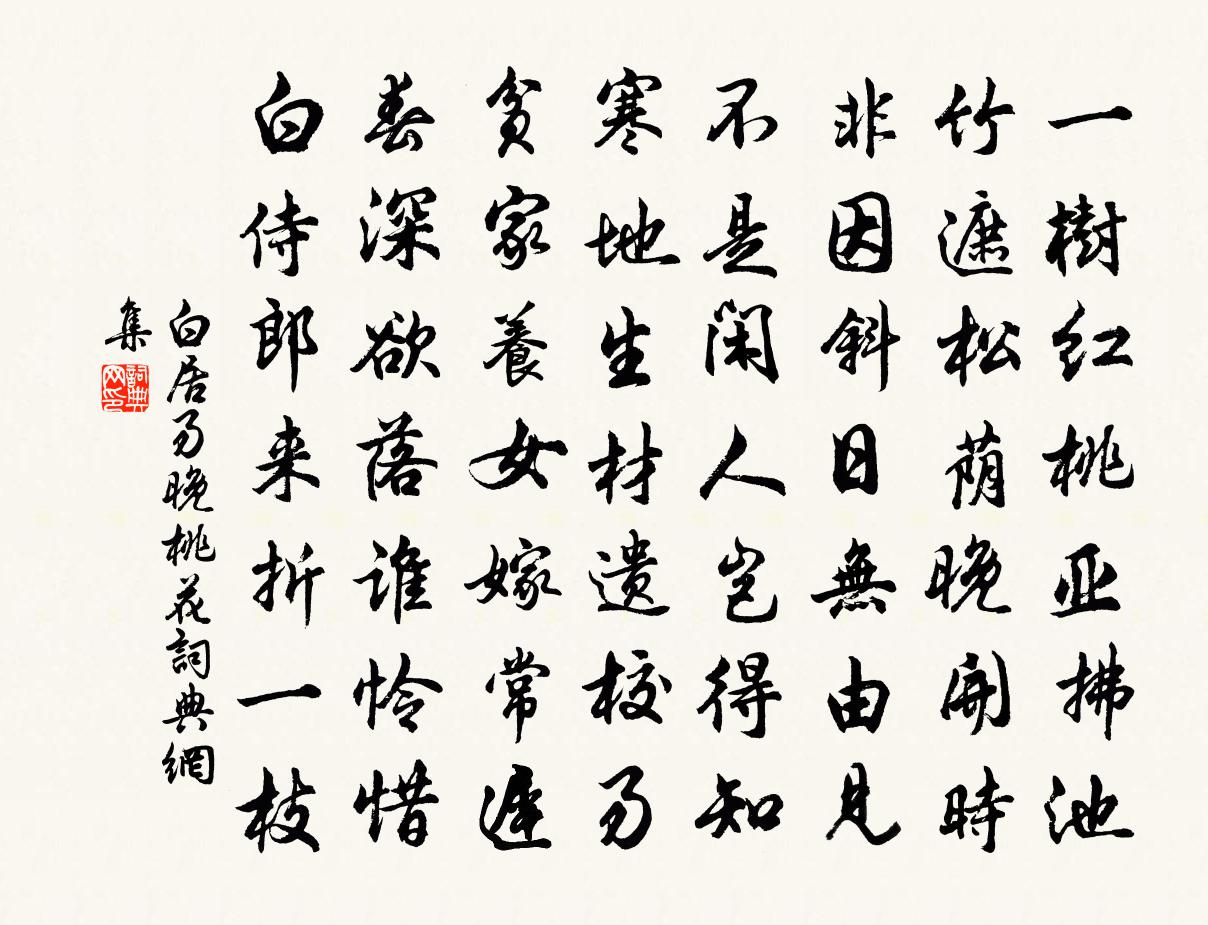 一樹红桃亚拂池
竹遮松荫晚開時
非因斜日無由見
不是閑人岂得知
寒地生材遗校易
貧家養女嫁常遲
春深欲落谁怜惜
白侍郎来折一枝
白居易晚桃花詞典網
集
詞典网印